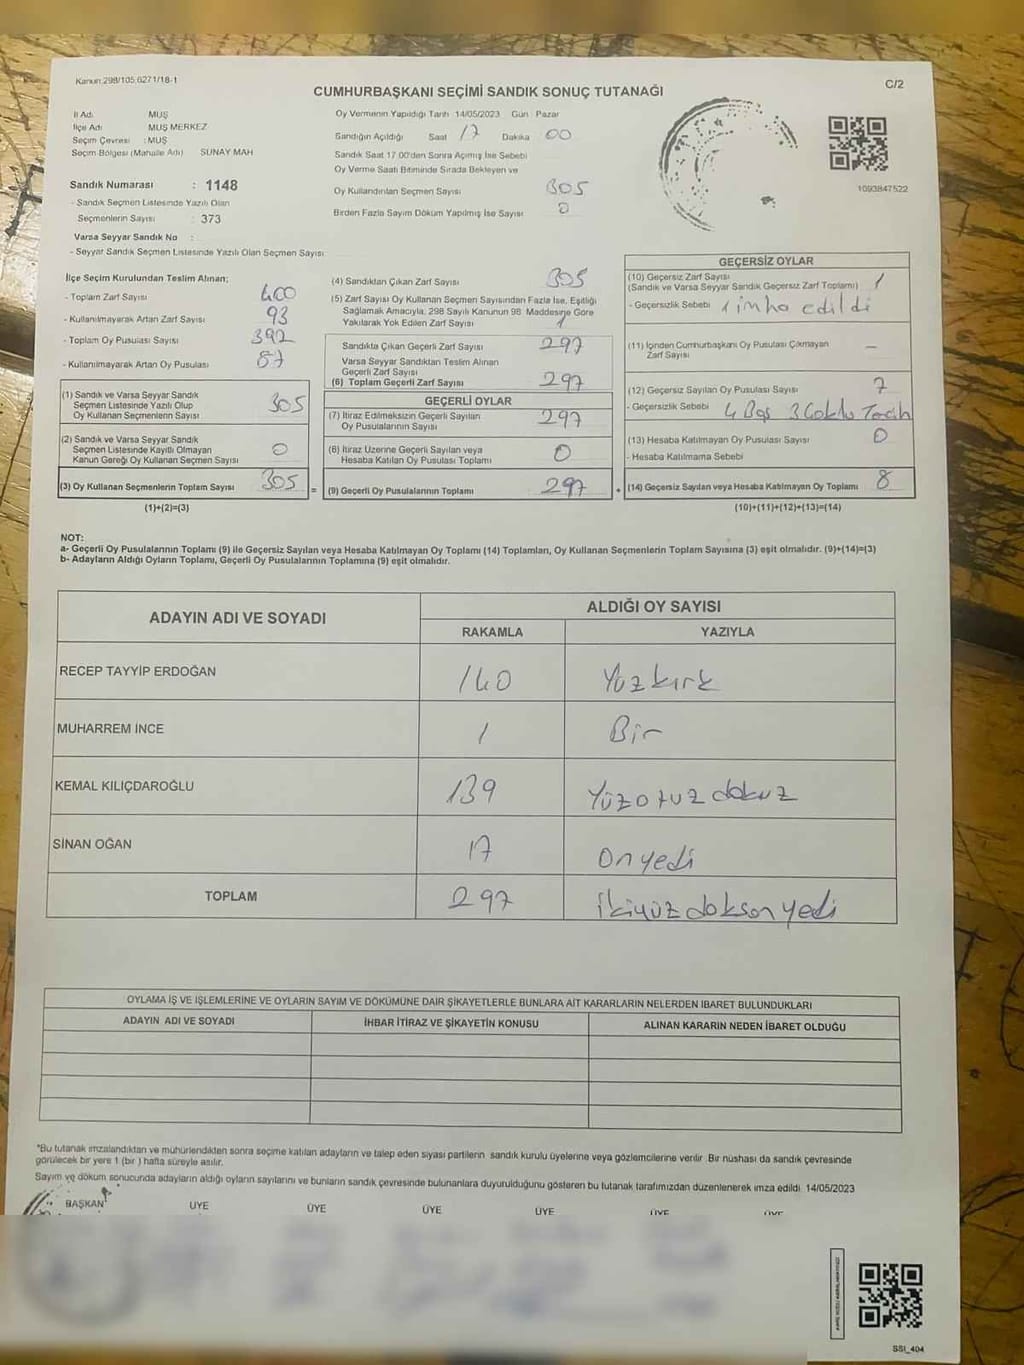 Kanun:298/105,6271/18-1
C/2
CUMHURBAŞKANI SEÇİMİ SANDIK SONUÇ TUTANAĞI
İl Adı MUŞ
İlçe Adı MUŞ MERKEZ
Seçim Çevresi : MUŞ
Seçim Bölgesi (Mahalle Adı) SUNAY MAH
Sandık Numarası : 1148
- Sandık Seçmen Listesinde Yazılı Olan
Seçmenlerin Sayısı : 373
Varsa Seyyar Sandık No :
- Seyyar Sandık Seçmen Listesinde Yazılı Olan Seçmen Sayısı
Oy Vermenin Yapıldığı Tarih 14/05/2023 Gün Pazar
Sandığın Açıldığı Saat 17 Dakika 00
Sandık Saat 17 00'den Sonra Açılmış İse Sebebi
Oy Verme Saati Bitiminde Sırada Bekleyen ve
Oy Kullandırılan Seçmen Sayısı 305
Birden Fazla Sayım Döküm Yapılmış İse Sayısı 0
1093847522
İlçe Seçim Kurulundan Teslim Alınan;
- Toplam Zarf Sayısı 400
- Kullanılmayarak Artan Zarf Sayısı 93
- Toplam Oy Pusulası Sayısı 392
- Kullanılmayarak Artan Oy Pusulası 87
(1) Sandık ve Varsa Seyyar Sandık
Seçmen Listesinde Yazılı Olup
Oy Kullanan Seçmenlerin Sayısı 305
(2) Sandık ve Varsa Seyyar Sandık
Seçmen Listesinde Kayıtlı Olmayan
Kanun Gereği Oy Kullanan Seçmen Sayısı 0
(3) Oy Kullanan Seçmenlerin Toplam Sayısı 305
(1)+(2)=(3)
(4) Sandıktan Çıkan Zarf Sayısı 305
(5) Zarf Sayısı Oy Kullanan Seçmen Sayısından Fazla İse, Eşitliği
Sağlamak Amacıyla, 298 Sayılı Kanunun 98 Maddesine Göre
Yakılarak Yok Edilen Zarf Sayısı 1
Sandıkta Çıkan Geçerli Zarf Sayısı 297
Varsa Seyyar Sandıktan Teslim Alınan
Geçerli Zarf Sayısı
(6) Toplam Geçerli Zarf Sayısı 297
GEÇERLİ OYLAR
(7) İtiraz Edilmeksizin Geçerli Sayılan
Oy Pusulalarının Sayısı 297
(8) İtiraz Üzerine Geçerli Sayılan veya
Hesaba Katılan Oy Pusulası Toplamı 0
= (9) Geçerli Oy Pusulalarının Toplamı 297
GEÇERSİZ OYLAR
(10) Geçersiz Zarf Sayısı
(Sandık ve Varsa Seyyar Sandık Geçersiz Zarf Toplamı) 1
- Geçersizlik Sebebi 1 imha edildi
(11) İçinden Cumhurbaşkanı Oy Pusulası Çıkmayan
Zarf Sayısı -
(12) Geçersiz Sayılan Oy Pusulası Sayısı 7
- Geçersizlik Sebebi 4 Boş 3 Çoklu Tercih
(13) Hesaba Katılmayan Oy Pusulası Sayısı 0
- Hesaba Katılmama Sebebi
+ (14) Geçersiz Sayılan veya Hesaba Katılmayan Oy Toplamı 8
(10)+(11)+(12)+(13)=(14)
NOT:
a- Geçerli Oy Pusulalarının Toplamı (9) ile Geçersiz Sayılan veya Hesaba Katılmayan Oy Toplamı (14) Toplamları, Oy Kullanan Seçmenlerin Toplam Sayısına (3) eşit olmalıdır. (9)+(14)=(3)
b- Adayların Aldığı Oyların Toplamı, Geçerli Oy Pusulalarının Toplamına (9) eşit olmalıdır.
ADAYIN ADI VE SOYADI
ALDIĞI OY SAYISI
RAKAMLA YAZIYLA
RECEP TAYYİP ERDOĞAN 140 Yüzkırk
MUHARREM İNCE 1 Bir
KEMAL KILIÇDAROĞLU 139 Yüzotuz dokuz
SİNAN OĞAN 17 Onyedi
TOPLAM 297 ikiyüz doksan yedi
OYLAMA İŞ VE İŞLEMLERİNE VE OYLARIN SAYIM VE DÖKÜMÜNE DAİR ŞİKAYETLERLE BUNLARA AİT KARARLARIN NELERDEN İBARET BULUNDUKLARI
ADAYIN ADI VE SOYADI İHBAR İTİRAZ VE ŞİKAYETİN KONUSU ALINAN KARARIN NEDEN İBARET OLDUĞU
*Bu tutanak imzalandıktan ve mühürlendikten sonra seçime katılan adayların ve talep eden siyasi partilerin sandık kurulu üyelerine veya gözlemcilerine verilir. Bir nüshası da sandık çevresinde
görülecek bir yere 1 (bir) hafta süreyle asılır.
Sayım ve döküm sonucunda adayların aldığı oyların sayılarını ve bunların sandık çevresinde bulunanlara duyurulduğunu gösteren bu tutanak tarafımızdan düzenlenerek imza edildi 14/05/2023
BAŞKAN ÜYE ÜYE ÜYE ÜYE ÜYE ÜYE
SSI_404